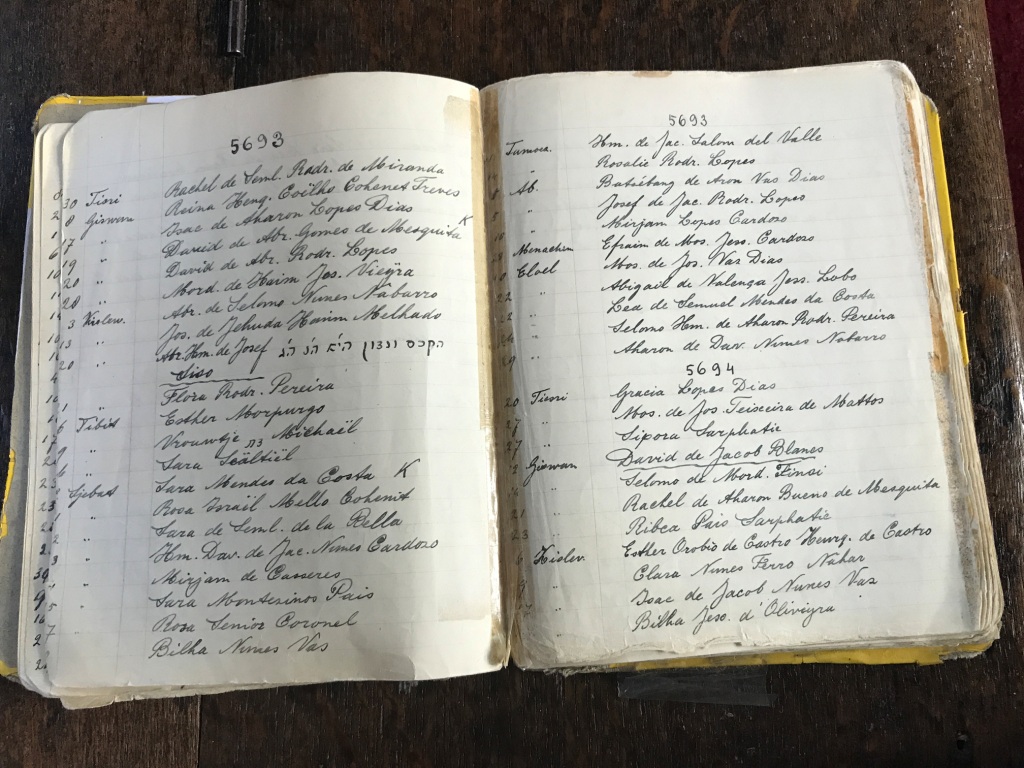 5693
30 Tisri Rachel de Seml. Rodr. de Miranda
8 Giswan Reina Henq. Coilho Cohenet Treves
" Isac de Aharon Lopes Dias
17 " David de Abr. Gomes de Mesquita K
19 " David de Abr. Rodr. Lopes
20 " Mord. de Haim Jos. Vieÿra
28 " Abr. de Selomo Nunes Nabarro
3 Kislew. Jos. de Jehuda Haim Melhado
13 " Abr. Hm. de Josef
20 " Siso
Flora Rodr. Pereira
1 " Esther Morpurgo
6 Tibet Vrouwtje בת Michaël
" Sara Sealtiël
" Sara Mendes da Costa K
Sjebat Rosa Israil Mello Cohenit
" Sara de Seml. de la Bella
" Hm. Dav. de Jac. Nunes Cardozo
" Mirjam de Casseres
" Sara Montesinos Pais
" Rosa Senior Coronel
" Bilha Nunes Vas
5693
Tamoea. Hm. de Jac. Salom del Valle
" Rosalie Rodr. Lopes
Ab. Batsébang de Aron Vas Dias
" Josef de Jac. Rodr. Lopes
" Mirjam Lopes Cardozo
Menachem Efraim de Mos. Jess. Cardozo
Eloel Mos. de Jos. Vas Dias
" Abigail de Valença Jess. Lobo
" Lea de Semuel Mendes da Costa
" Selomo Hm. de Aharon Rodr. Pereira
" Aharon de Dav. Nunes Nabarro
5694
20 Tisri Gracia Lopes Dias
" Mos. de Jos. Teixeira de Mattos
27 " Sipora Sarphatie
27 " David de Jacob Blanes
Giswan Selomo de Mord. Finsi
" Rachel de Aharon Bueno de Mesquita
21 " Ribca Pais Sarphatie
23 " Esther Orobio de Castro Henrq. de Castro
6 Kislev. Clara Nunes Ferro Nahar
9 " Isac de Jacob Nunes Vaz
" Bilha Jess. d'Oliveijra